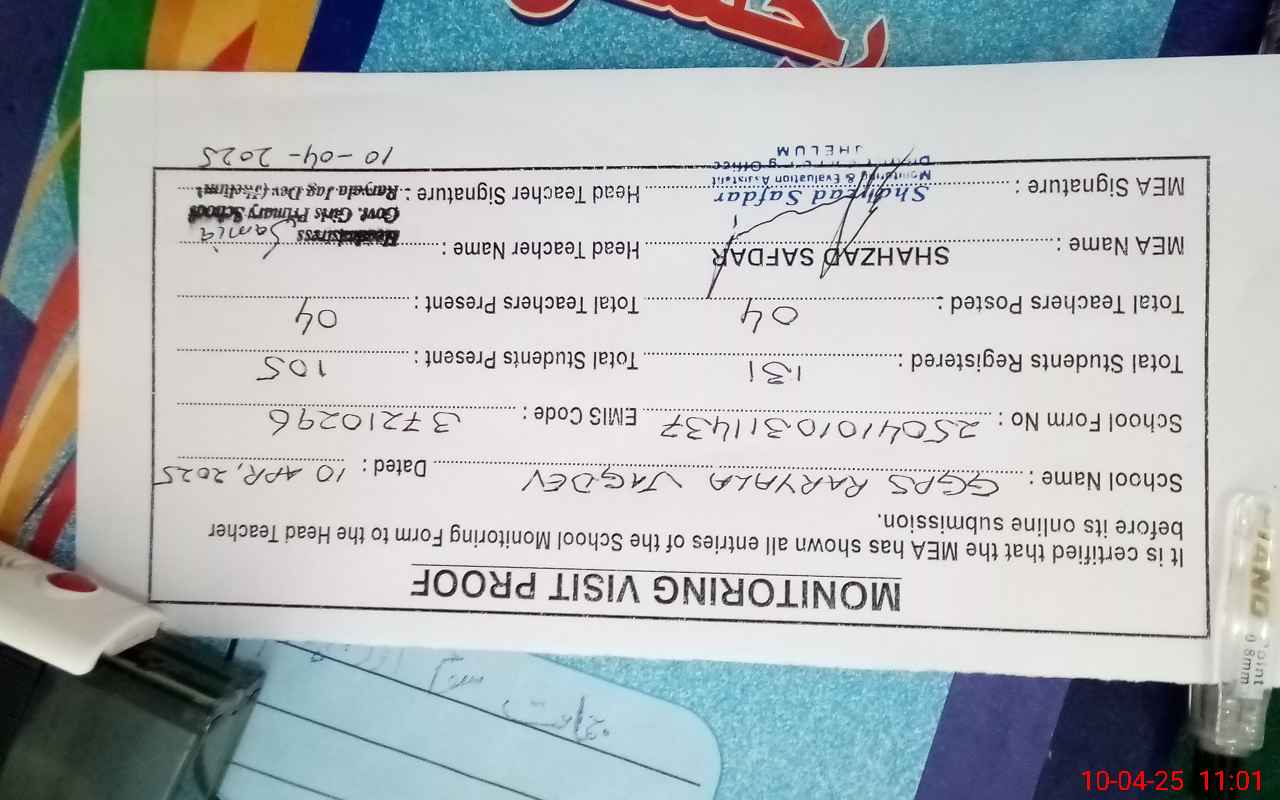 MONITORING VISIT PROOF
It is certified that the MEA has shown all entries of the School Monitoring Form to the Head Teacher
before its online submission.
School Name : GGPS RARYALA JAGDEV Dated : 10 APR, 2025
School Form No : 25041010311437 EMIS Code : 37210296
Total Students Registered : 131 Total Students Present : 105
Total Teachers Posted : 04 Total Teachers Present : 04
MEA Name : SHAHZAD SAFDAR Head Teacher Name : Samia
Headmistress
Govt. Girls Primary School
MEA Signature : Shahzad Safdar Head Teacher Signature : Raryala Jag Dev (Jhelum)
Monitoring & Evaluation Assistant
JHELUM
10-04-2025
PIANO
Point
0.8mm
جماعت
10-04-25 11:01